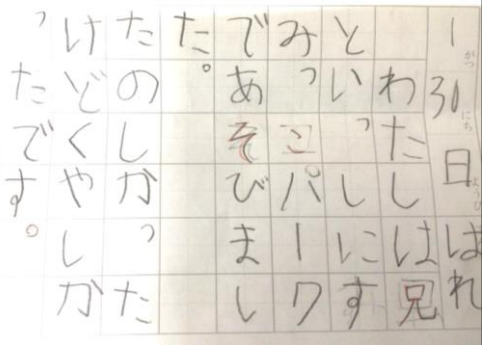 1がつ31にち日ようびはれ
わたしは兄
といっしにす
みっこパーク
であそびまし
た。
たのしかった
けどくやしか
ったです。